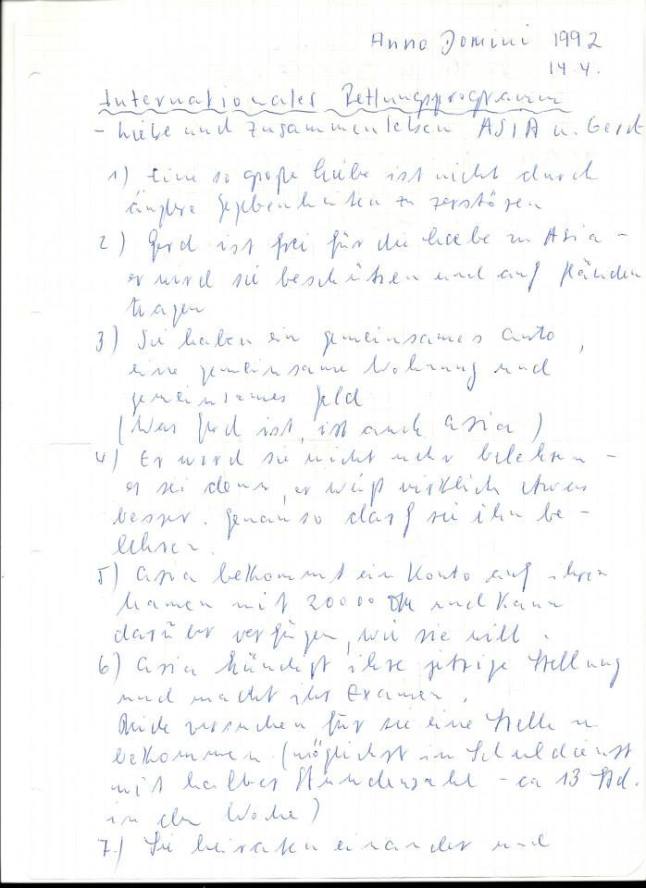 Anno Domini 1992
14.4.
Internationales Rettungsprogramm
- Liebe und Zusammenleben ASIA u. Gerd
1) Eine so große Liebe ist nicht durch
äußere Gegebenheiten zu zerstören
2) Gerd ist frei für die Liebe zu Asia -
er wird sie beschützen und auf Händen
tragen
3) Sie haben ein gemeinsames Auto,
eine gemeinsame Wohnung und
gemeinsames Geld
(Was Gerd ist, ist auch Asia)
4) Er wird sie nicht mehr belehren -
es sei denn, er weiß wirklich etwas
besser. Genauso darf sie ihn be-
lehren.
5) Asia bekommt ein Konto auf ihren
Namen mit 20000 DM und kann
darüber verfügen, wie sie will.
6) Asia kündigt ihre jetzige Stellung
und macht ihr Examen.
Beide versuchen für sie eine Stelle zu
bekommen (möglichst im Schuldienst
mit halber Stundenzahl - ca 13 Std.
in der Woche)
7.) Sie heiraten einander und